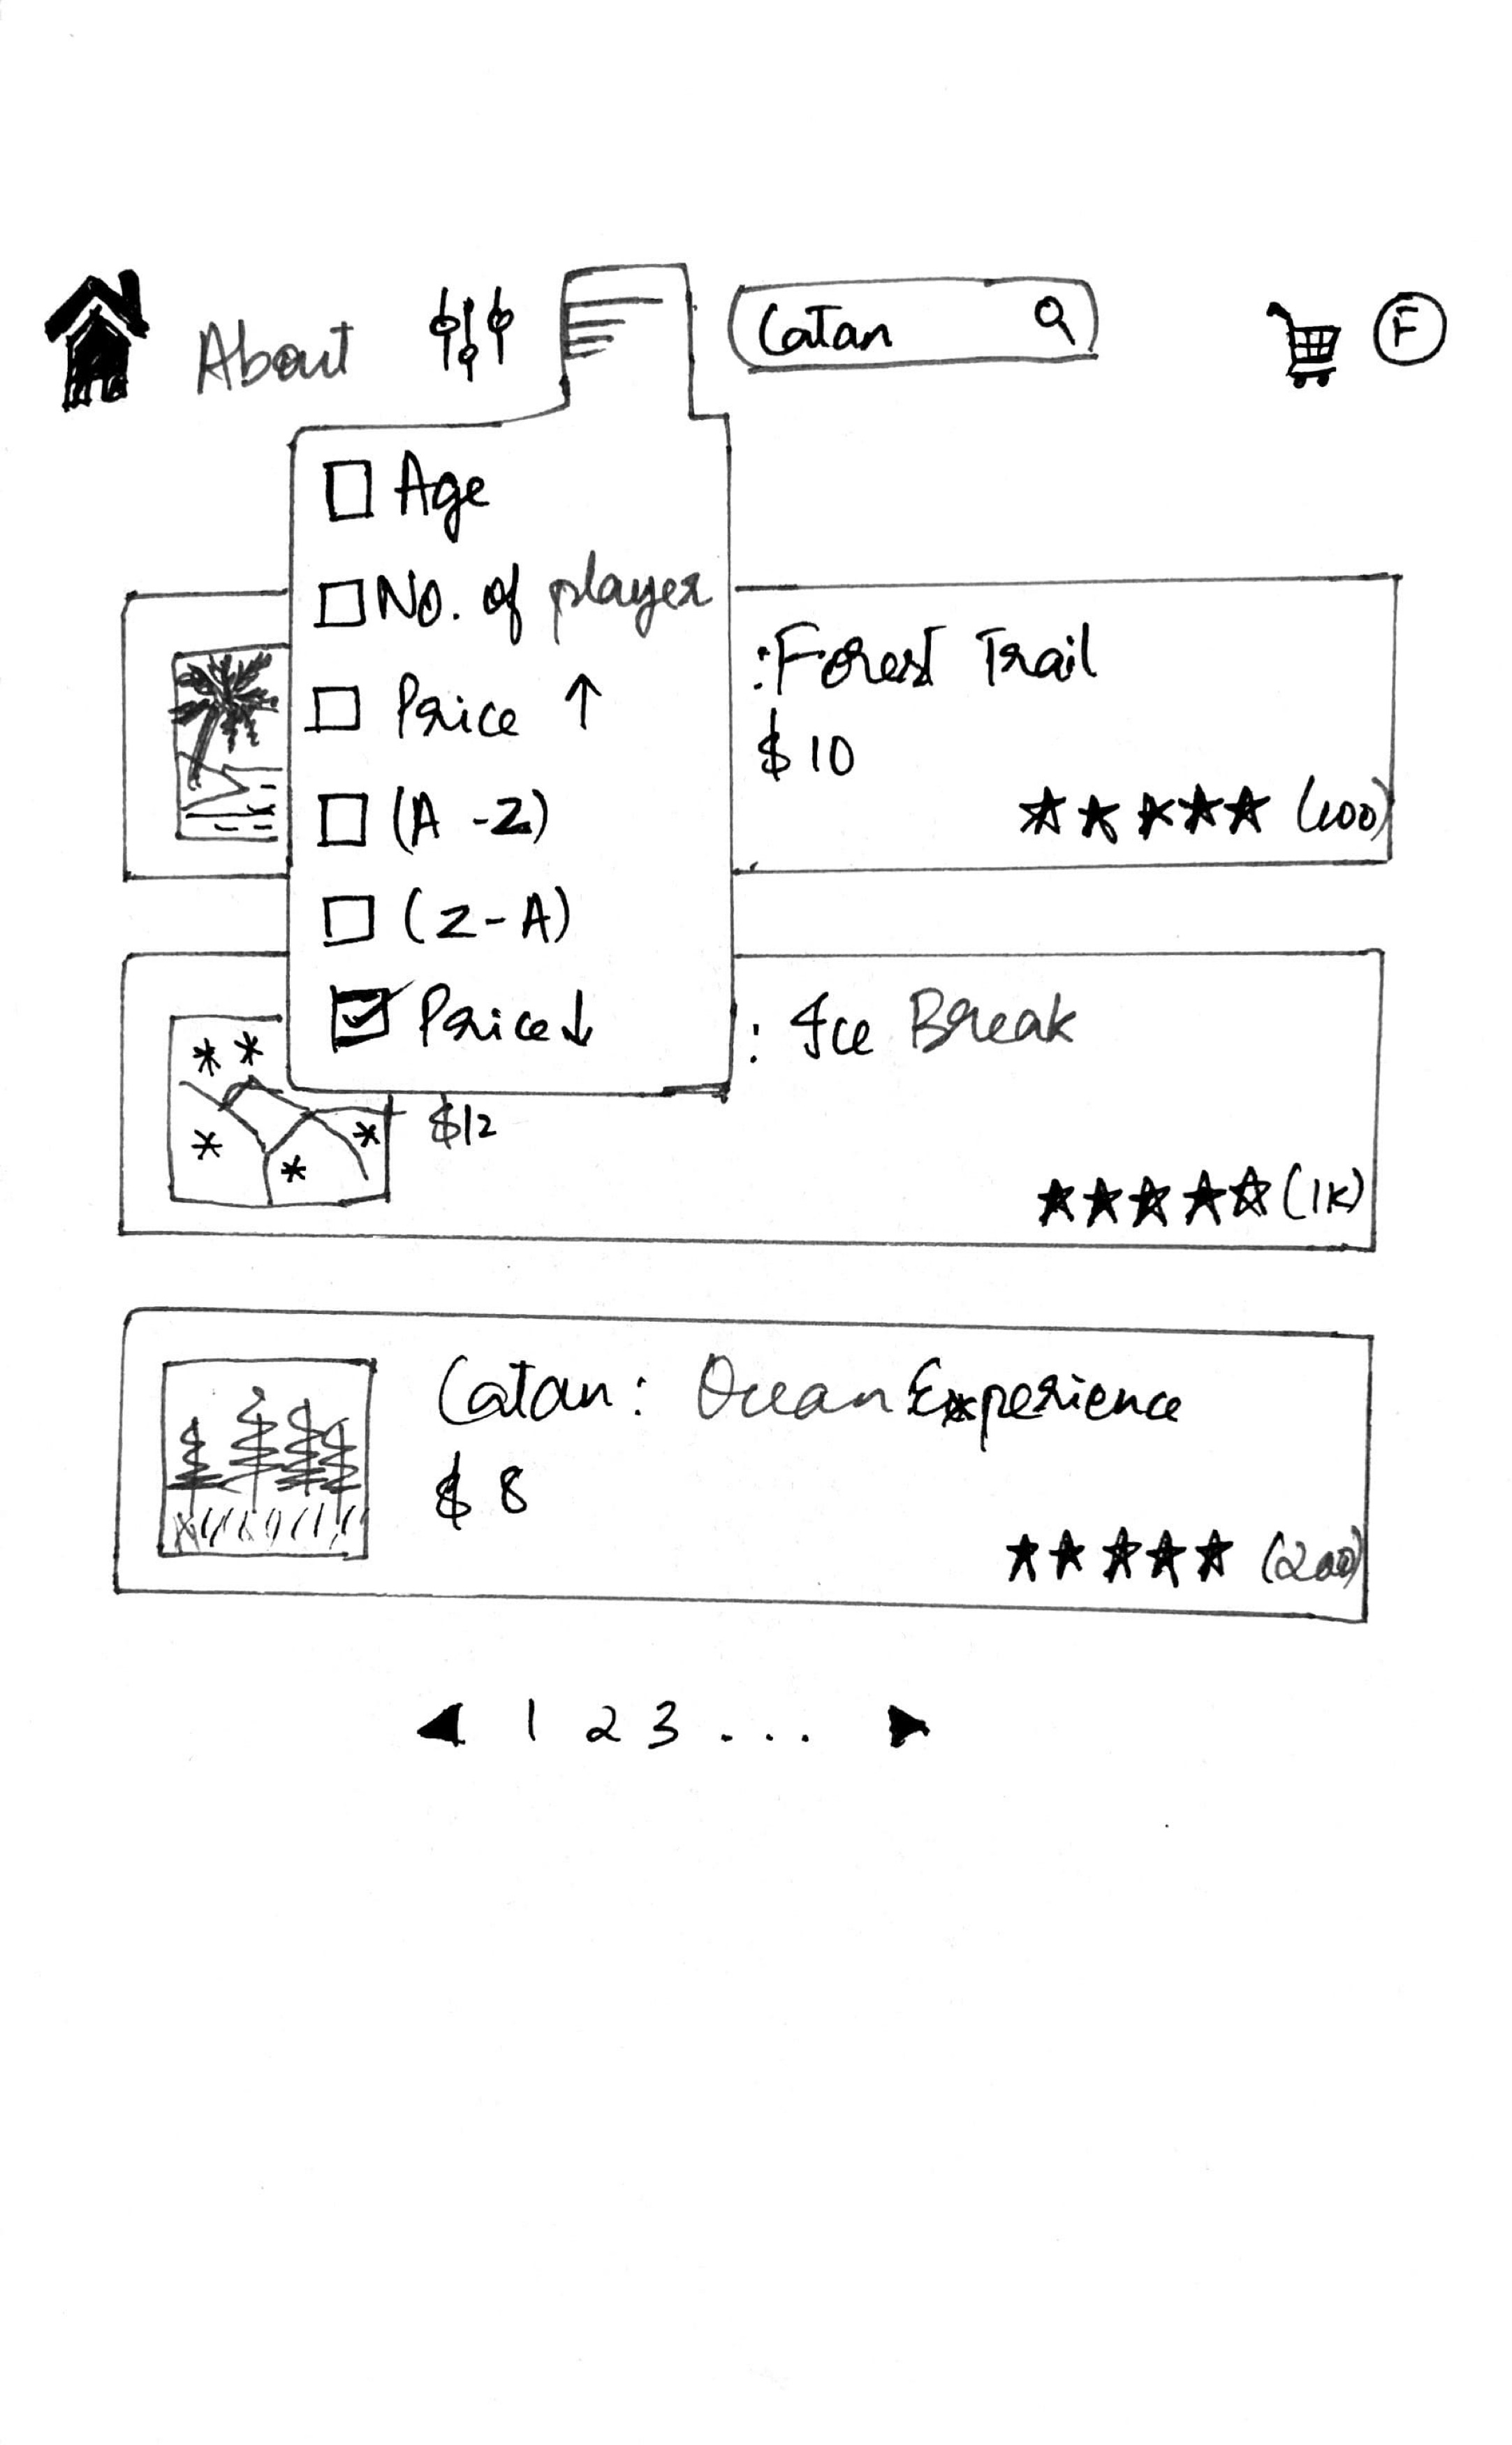 About
Catan
F
Age
No. of player
Price ↑
(A - Z)
(Z - A)
Price ↓
: Forest Trail
$ 10
(100)
: Ice Break
$12
(1K)
Catan: Ocean Experience
$ 8
(200)
1 2 3 ...